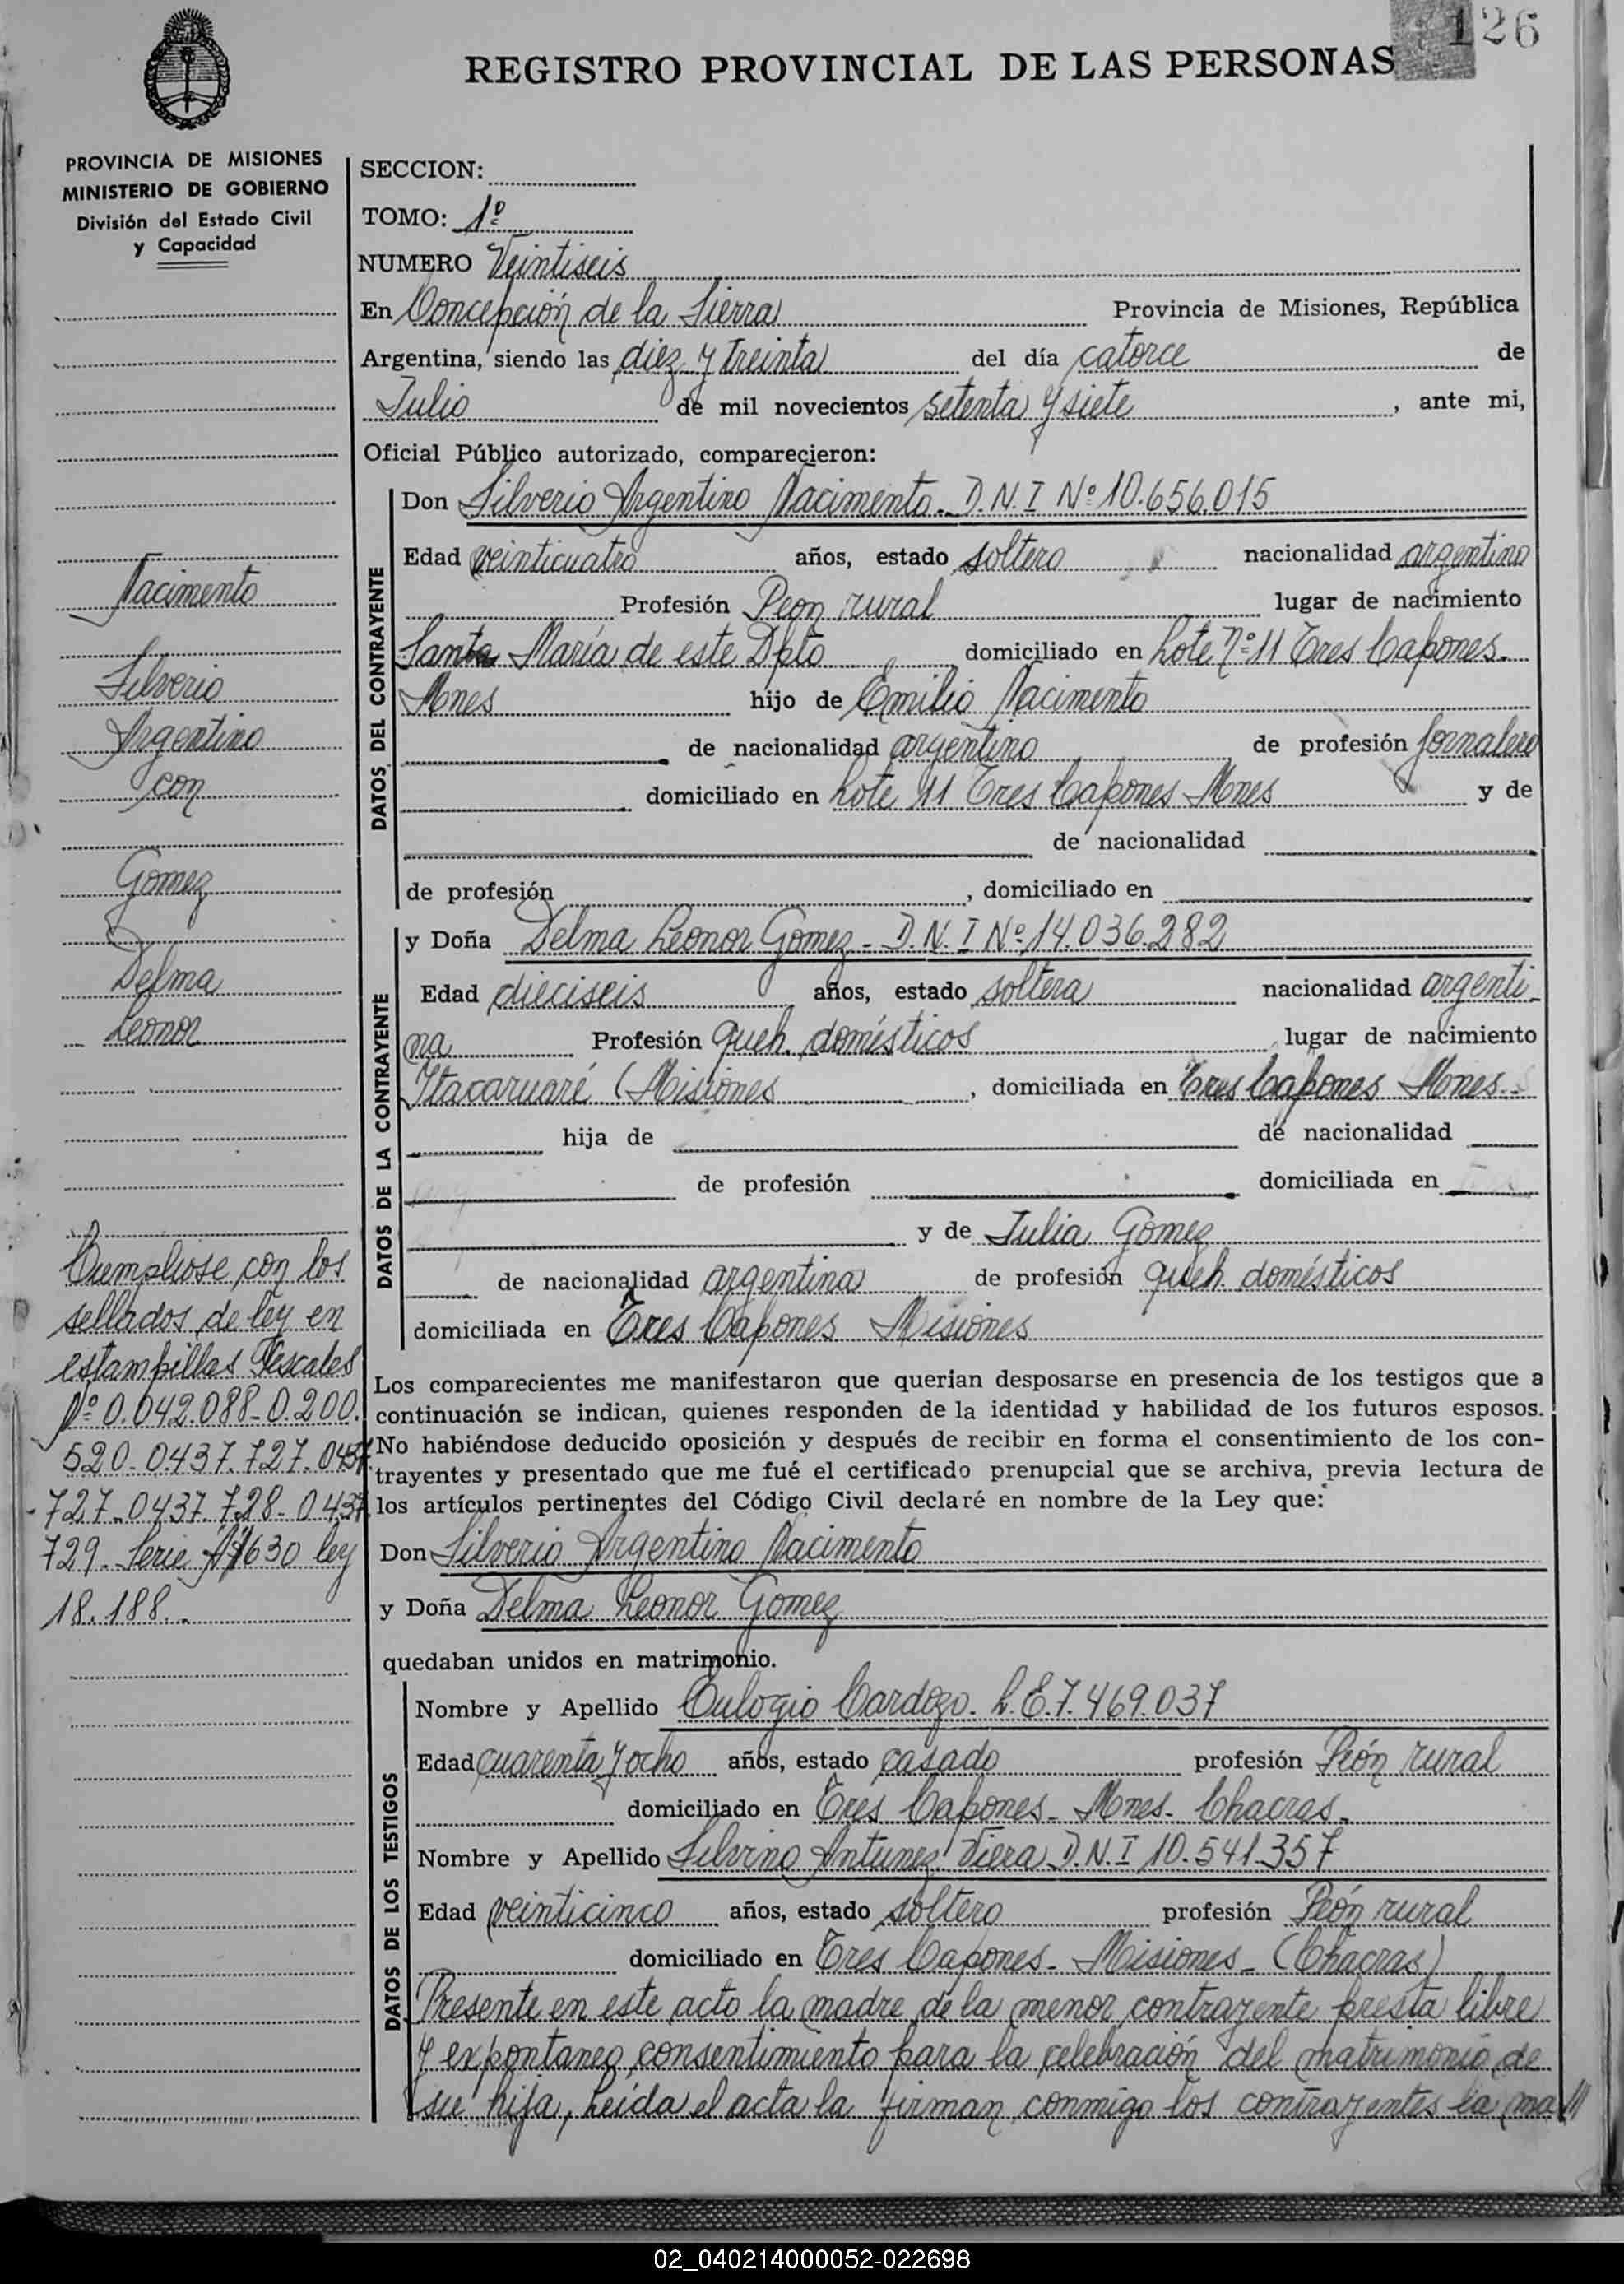 126
REGISTRO PROVINCIAL DE LAS PERSONAS
PROVINCIA DE MISIONES
MINISTERIO DE GOBIERNO
División del Estado Civil
y Capacidad
SECCION:
TOMO: 1º
NUMERO Veintiseis
En Concepción de la Sierra Provincia de Misiones, República
Argentina, siendo las diez y treinta del día catorce de
Julio de mil novecientos setenta y siete, ante mi,
Oficial Público autorizado, comparecieron:
DATOS DEL CONTRAYENTE
Don Silverio Argentino Nacimento. D.N.I Nº 10.656.015
Edad veinticuatro años, estado soltero nacionalidad argentino
Profesión Peon rural lugar de nacimiento
Santa María de este Dpto domiciliado en Lote Nº 11 Tres Capones.
Mnes hijo de Emilio Nacimento
de nacionalidad argentino de profesión jornalero
domiciliado en Lote 11 Tres Capones Mnes y de
de nacionalidad
de profesión , domiciliado en
DATOS DE LA CONTRAYENTE
y Doña Delma Leonor Gomez - D.N.I Nº 14.036.282
Edad dieciseis años, estado soltera nacionalidad argenti-
na Profesión queh. domésticos lugar de nacimiento
Itacaruaré (Misiones , domiciliada en Tres Capones Mnes.
hija de de nacionalidad
de profesión domiciliada en
y de Julia Gomez
de nacionalidad argentina de profesión queh. domésticos
domiciliada en Tres Capones Misiones
Los comparecientes me manifestaron que querian desposarse en presencia de los testigos que a
continuación se indican, quienes responden de la identidad y habilidad de los futuros esposos.
No habiéndose deducido oposición y después de recibir en forma el consentimiento de los con-
trayentes y presentado que me fué el certificado prenupcial que se archiva, previa lectura de
los artículos pertinentes del Código Civil declaré en nombre de la Ley que:
Don Silverio Argentino Nacimento
y Doña Delma Leonor Gomez
quedaban unidos en matrimonio.
DATOS DE LOS TESTIGOS
Nombre y Apellido Eulogio Cardozo. L.E.7.469.037
Edad cuarenta y ocho años, estado casado profesión Peón rural
domiciliado en Tres Capones - Mnes - Chacras.
Nombre y Apellido Silvino Antunez Viera D.N.I 10.541.357
Edad veinticinco años, estado soltero profesión Peón rural
domiciliado en Tres Capones - Misiones - (Chacras)
Presente en este acto la madre de la menor contrayente presta libre
y expontaneo consentimiento para la celebración del matrimonio de
su hija, Leída el acta la firman conmigo los contrayentes la ma///
Nacimento
Silverio
Argentino
con
Gomez
Delma
Leonor
Cumpliose con los
sellados de ley en
estampillas Fiscales
Nº 0.042.088-0.200.
520-0437.727.0437
-727-0437.728-0437.
729. Serie 630 ley
18.188.
02_040214000052-022698